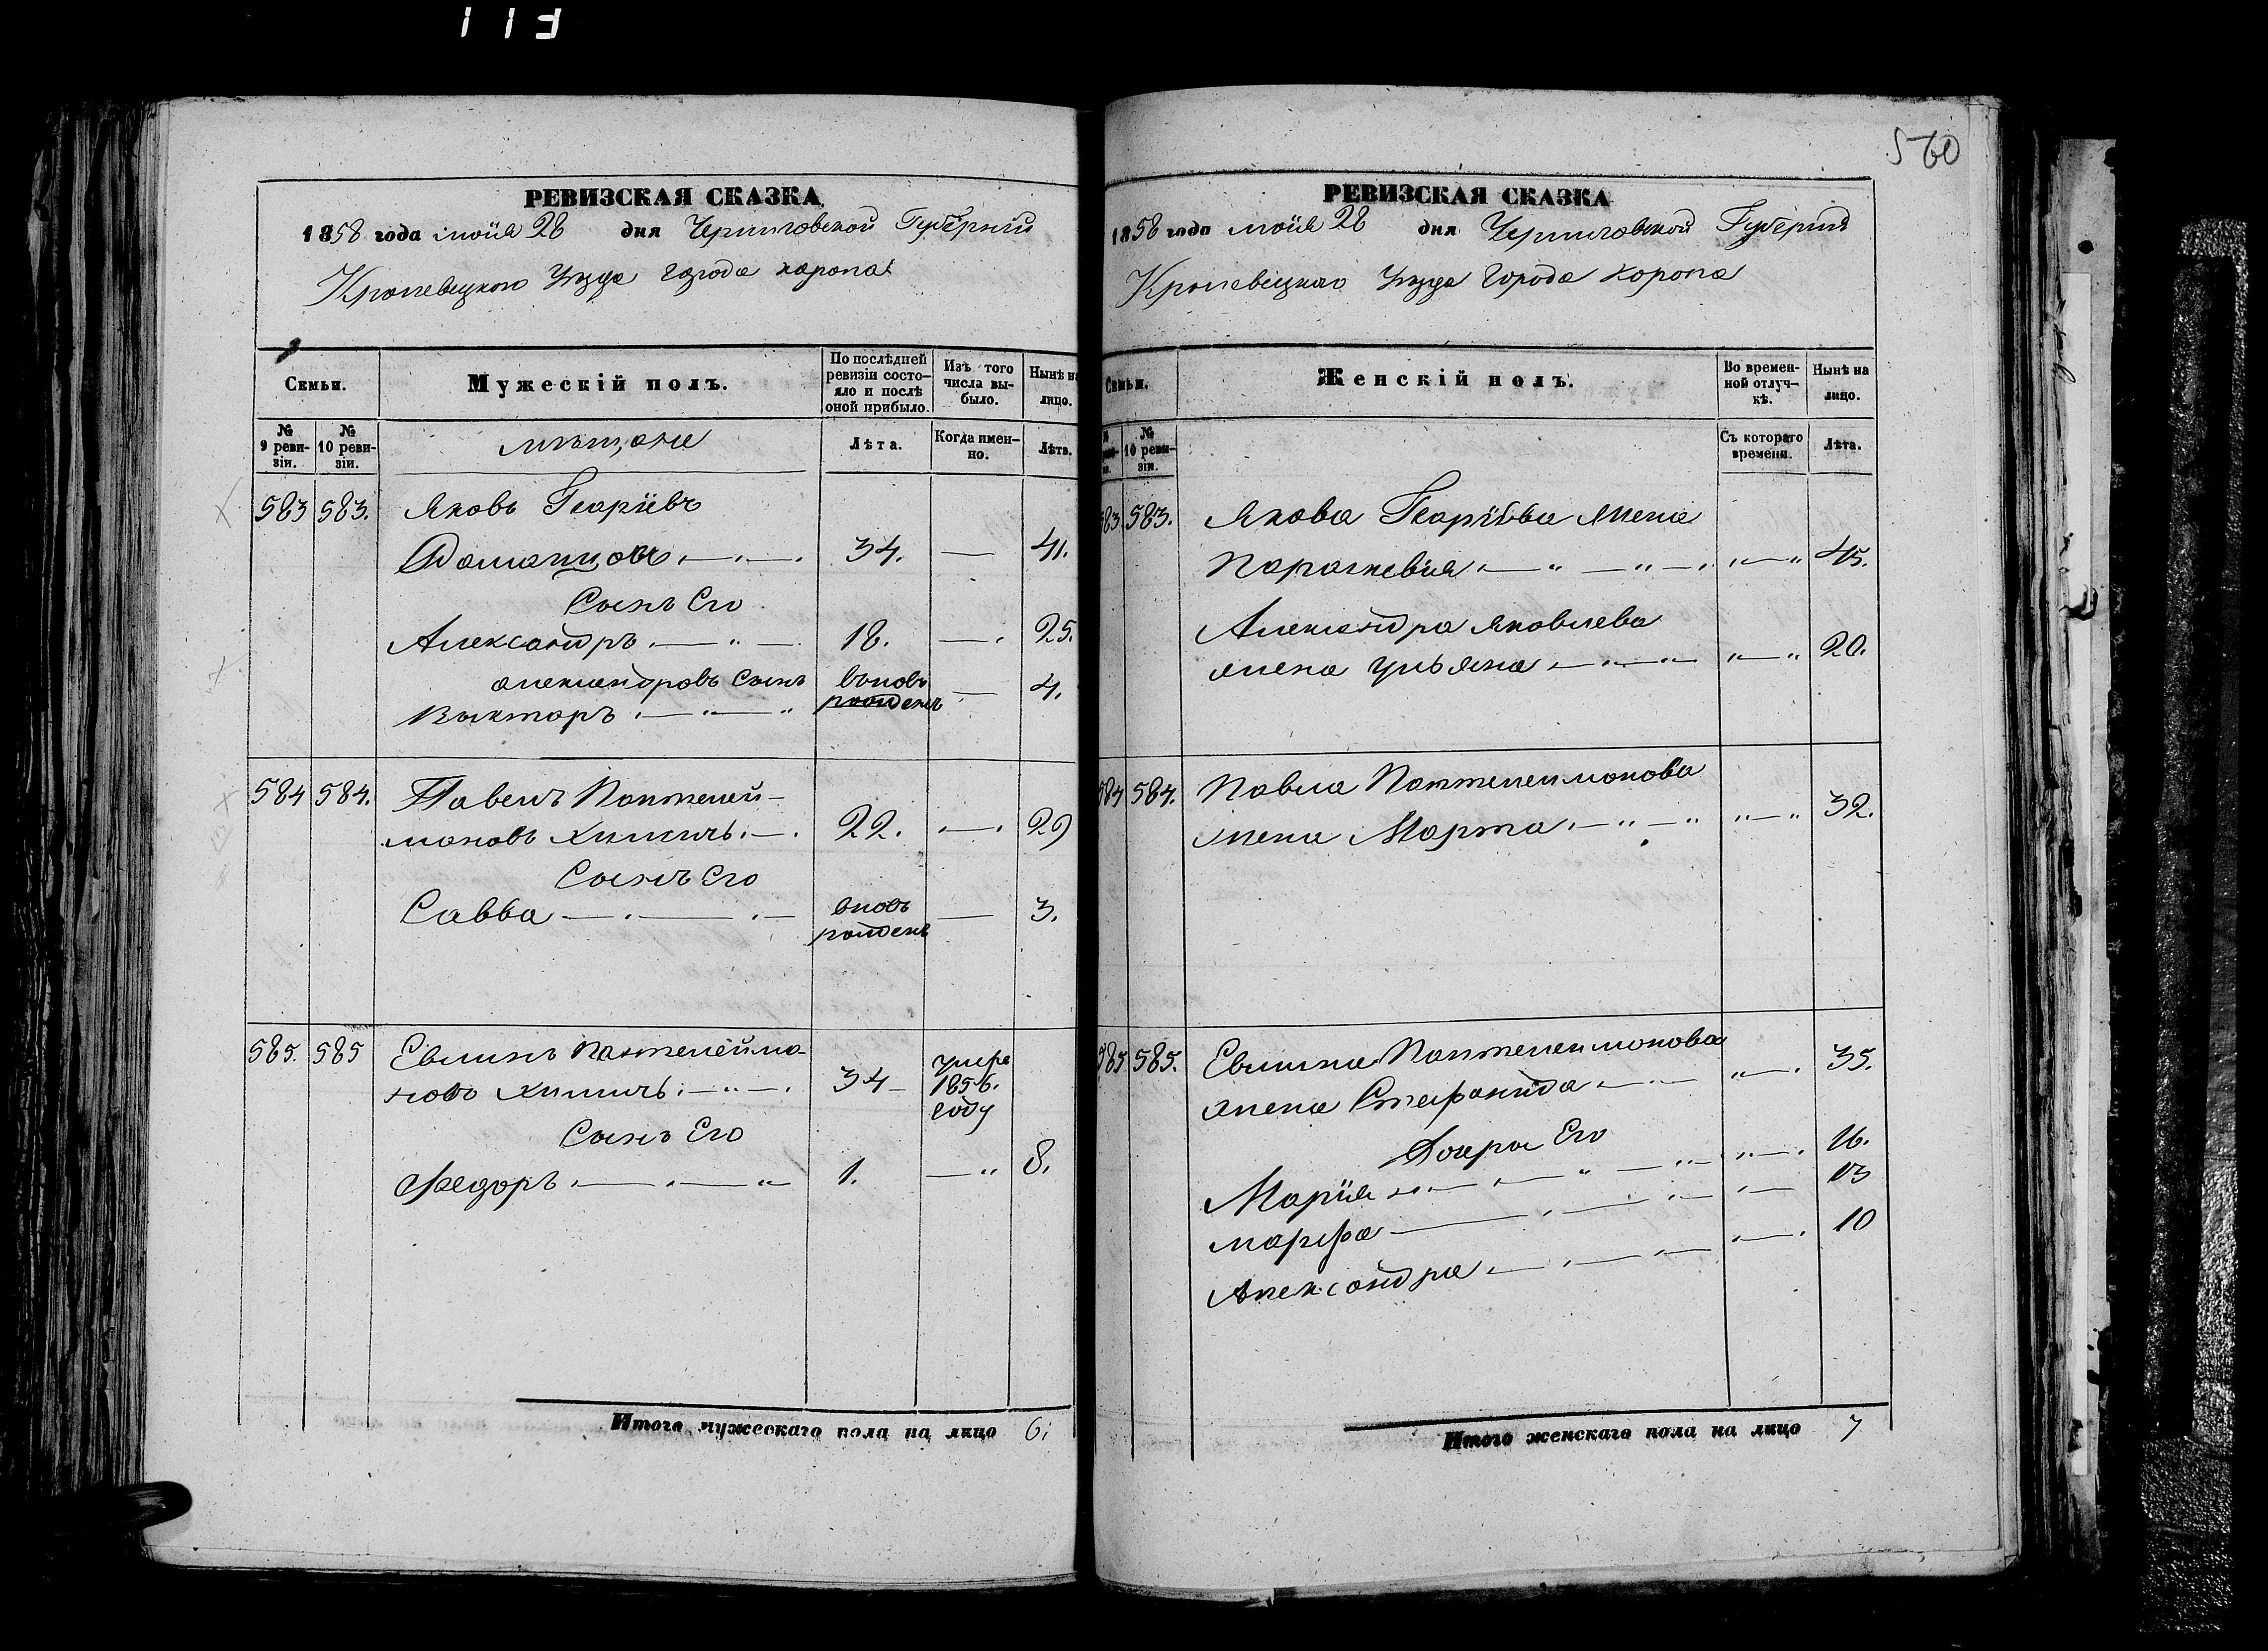 113
РЕВИЗСКАЯ СКАЗКА
1858 года маія 28 дня Черниговской Губерніи
Кролевецкого Уезда Города Коропа
Семьи.
Мужескій полъ.
По послѣдней ревизіи состо-
яло и послѣ оной прибыло.
Изъ того числа вы-
было.
Нынѣ на лицо.
№ 9 реви-
зіи.
№ 10 реви-
зіи.
мѣщане
Лѣта.
Когда имен-
но.
Лѣта.
583 583. Яковъ Георгіевъ
34. — 41.
Сынъ Его
Александръ 18. — 25.
Александровъ Сынъ вновь
Викторъ рожденъ — 4.
584 584. Павелъ Пантелей-
моновъ Химичъ 22. — 29
Сынъ Его
Савва вновь — 3.
рожденъ
585. 585 Евлимъ Пантелеймо-
новъ Химичъ 34 умре
1856.
году
Сынъ Его
Федоръ 1. — 8.
Итого мужескаго пола на лицо 6
560
РЕВИЗСКАЯ СКАЗКА
1858 года маія 28 дня Черниговской Губерніи
Кролевецкаго Уезда Города Коропа
Семьи.
Женскій полъ.
Во времен-
ной отлуч-
кѣ.
Нынѣ на лицо.
№ 10 реви-
зіи.
Съ котораго времени.
Лѣта.
583 583. Якова Георгіева жена
Параскевія 45.
Александра Яковлева
жена Ульяна 20.
584 584. Павла Пантелеимонова
жена Марта 32.
585 585. Евлима Пантелеимонова 35.
жена Стефанида
Дочери Его
Марія 16.
Марфа 13
Александра 10
Итого женскаго пола на лицо 7